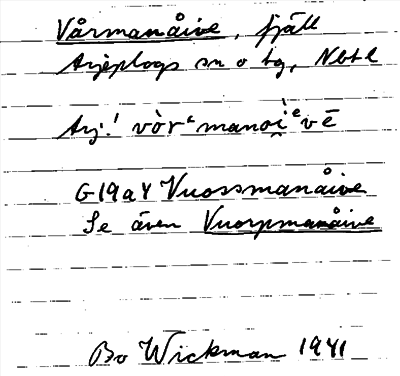 Vårmanåive, fjäll
Arjeplogs sn o tg, Nbtl
Arj.! vòrᶜmanoi̯ᵉvē
G19a4 Vuossmanåive
Se även Vuorpmanåive
Bo Wickman 1941